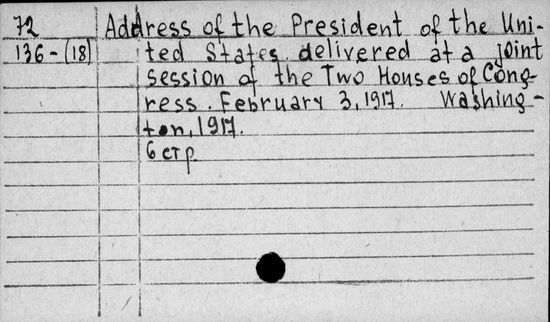 72 Address of the President of the Uni-
136-(18) ted States, delivered at a joint
session of the Two Houses of Cong-
ress. February 3, 1917. Washing-
ton, 1917.
6 стр.